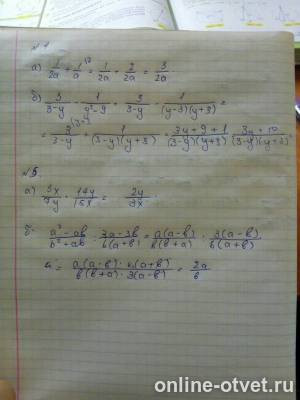 №1
а) 1/2a + 1/a = 1/2a + 2/2a = 3/2a
б) 3/3-y - 1/y²-9 = 3/3-y - 1/(y-3)(y+3) =
= 3/3-y + 1/(3-y)(y+3) = 3y+9+1/(3-y)(y+3) = 3y+10/(3-y)(y+3)
№5
а) 5x/7y · 14y/15x =
б) a²-ab/b²+ab : 3a-3b/6(a+b) = a(a-b)/b(b+a) : 3(a-b)/6(a+b)
= a(a-b)·6(a+b)/b(b+a)·3(a-b) = 2a/b
online-otvet.ru